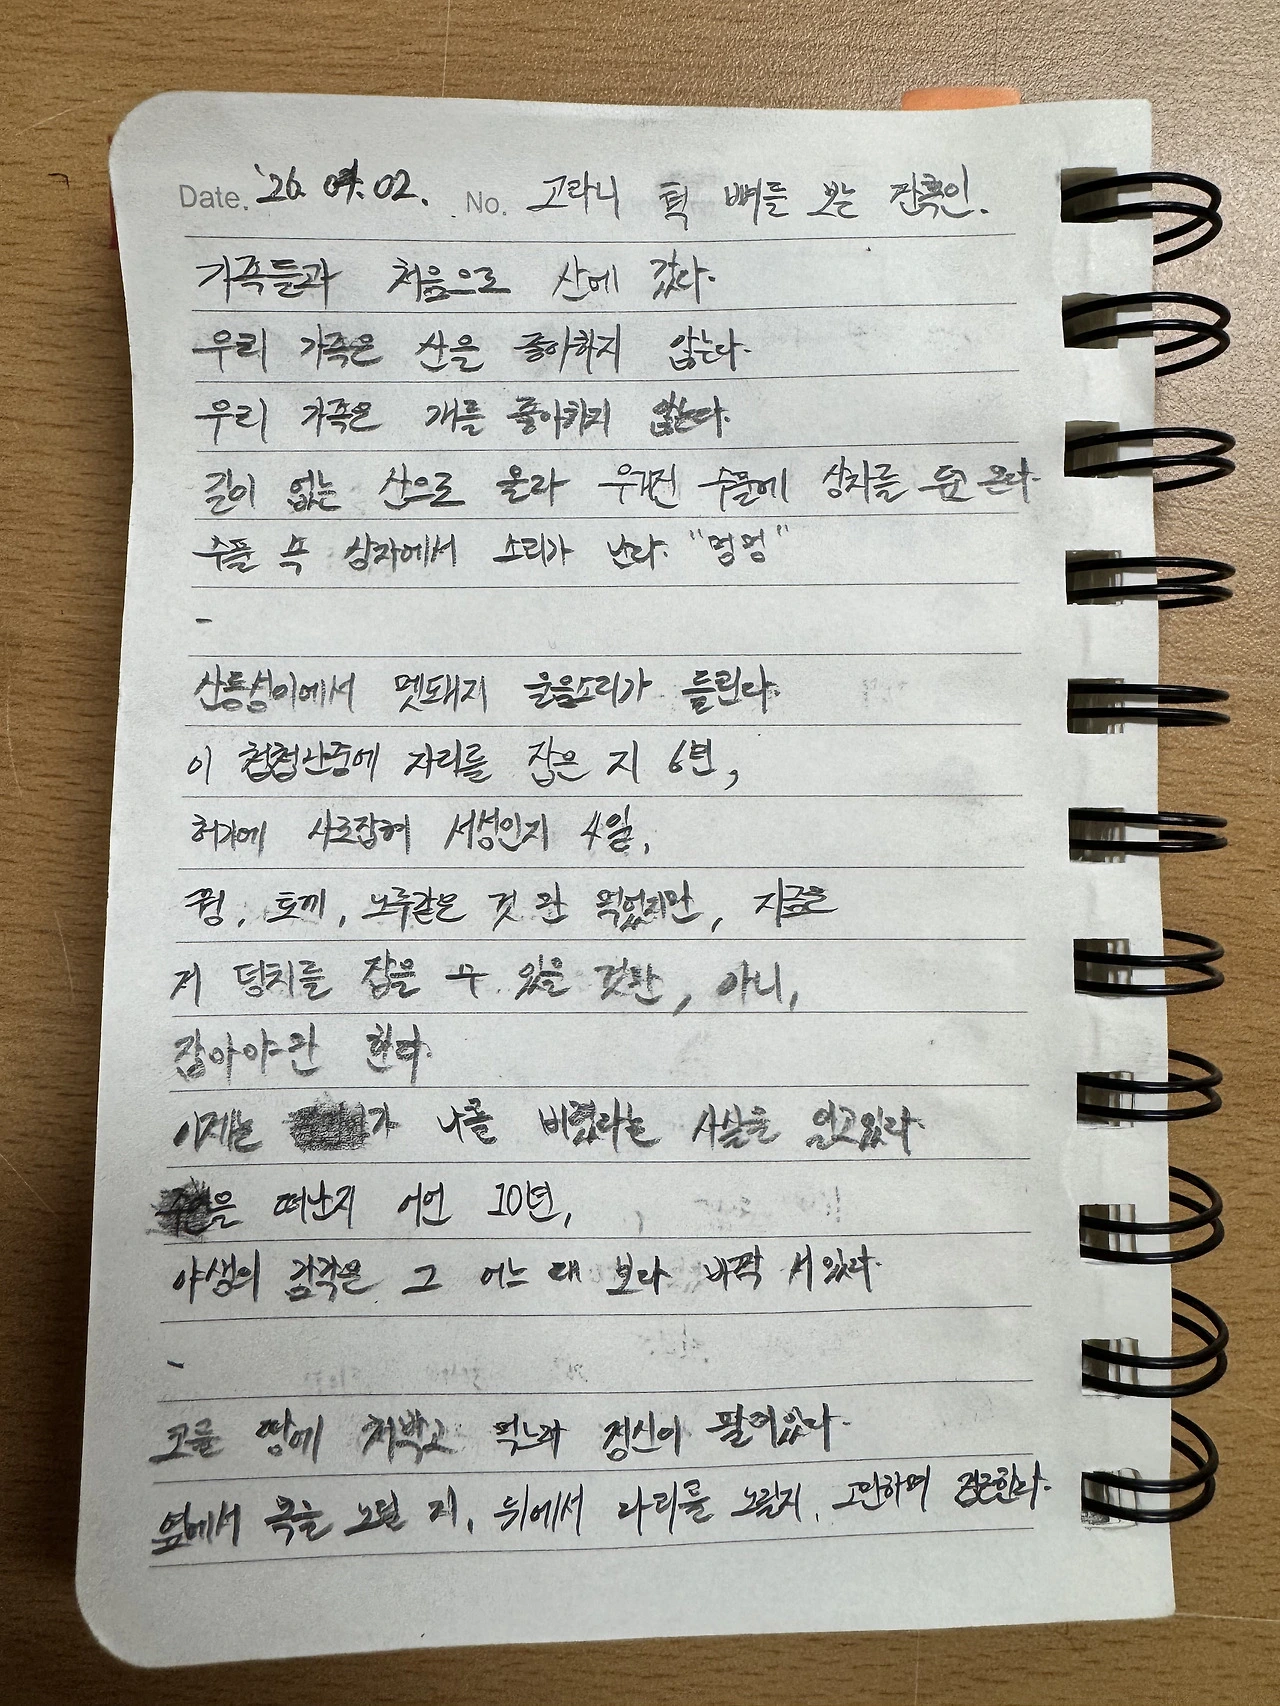 Date. '26. 04. 02. No. 고라니 턱 뼈를 보는 판혹인.
가족들과 처음으로 산에 갔다.
우리 가족은 산을 좋아하지 않는다.
우리 가족은 개를 좋아하지 않는다.
길이 없는 산으로 올라 우거진 수풀에 상자를 두고 온다.
수풀 속 상자에서 소리가 난다. "멍멍"
-
산등성이에서 멧돼지 울음소리가 들린다.
이 첩첩산중에 자리를 잡은 지 6년,
허기에 사로잡혀 서성인지 4일,
꿩, 토끼, 노루같은 것 만 먹었지만, 지금은
저 덩치를 잡을 수 있을 것만, 아니,
잡아야만 한다.
이제는 가 나를 버렸다는 사실을 알고있다.
을 떠난지 어언 10년,
야생의 감각은 그 어느 때 보다 바짝 서있다.
-
코를 땅에 처박고 먹느라 정신이 팔려있다.
옆에서 목을 노릴 지, 뒤에서 다리를 노릴지, 고민하며 접근한다.